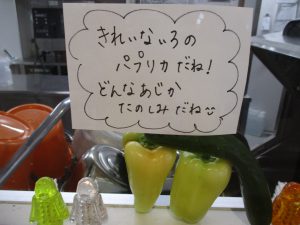 きれいないろの
パプリカだね!
どんなあじか
たのしみだね☺